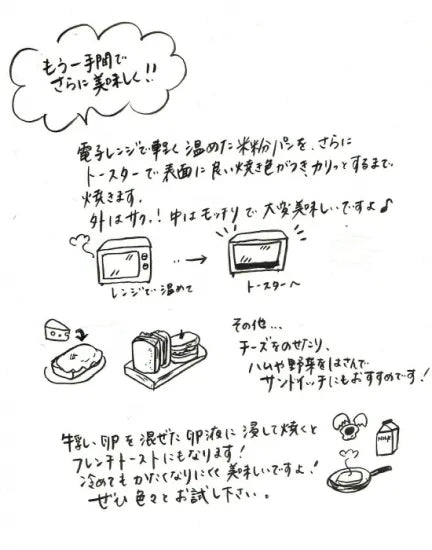 もう一手間で
さらに美味しく!!
電子レンジで軽く温めた米粉パンを、さらに
トースターで表面に良い焼き色がつきカリッとするまで
焼きます。
外はサクッ!中はモッチリで大変美味しいですよ♪
レンジで温めて
トースターへ
その他...
チーズをのせたり、
ハムや野菜をはさんで
サンドイッチにもおすすめです!
牛乳、卵を混ぜた卵液に浸して焼くと
フレンチトーストにもなります!
冷めてもかたくなりにくく美味しいですよ!
ぜひ色々とお試し下さい。
MILK